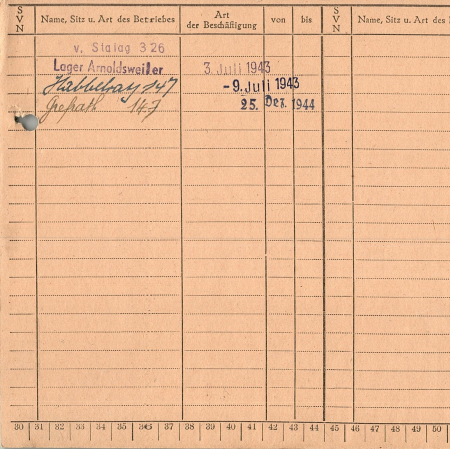 S V N Name, Sitz u. Art des Betriebes Art der Beschäftigung von bis S V N Name, Sitz u. Art des
v. Stalag 326
Lager Arnoldsweiler 3. Juli 1943
Habbelrath 147 -9. Juli 1943
Grefrath 147 25. Dez. 1944
30 31 32 33 34 35 36 37 38 39 40 41 42 43 44 45 46 47 48 49 50